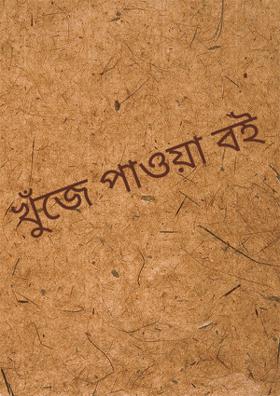 খুঁজে পাওয়া বই